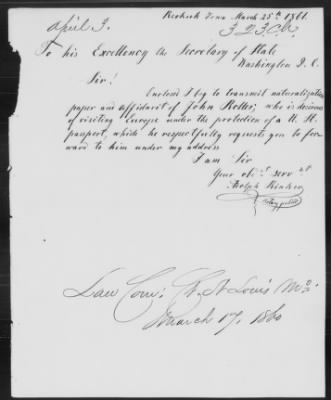 Keokuk Iowa March 25th 1861.
April 3.
To his Excellency the Secretary of State
Washington D. C.
Sir!
Enclosed I beg to transmit naturalization
paper and affidavit of John Roller, who is desirous
of visiting Europe under the protection of a U. St.
passport, which he respectfully requests you to for
ward to him under my address
I am Sir
Your obt servant
Law Com: St Louis Mo
March 17, 1860